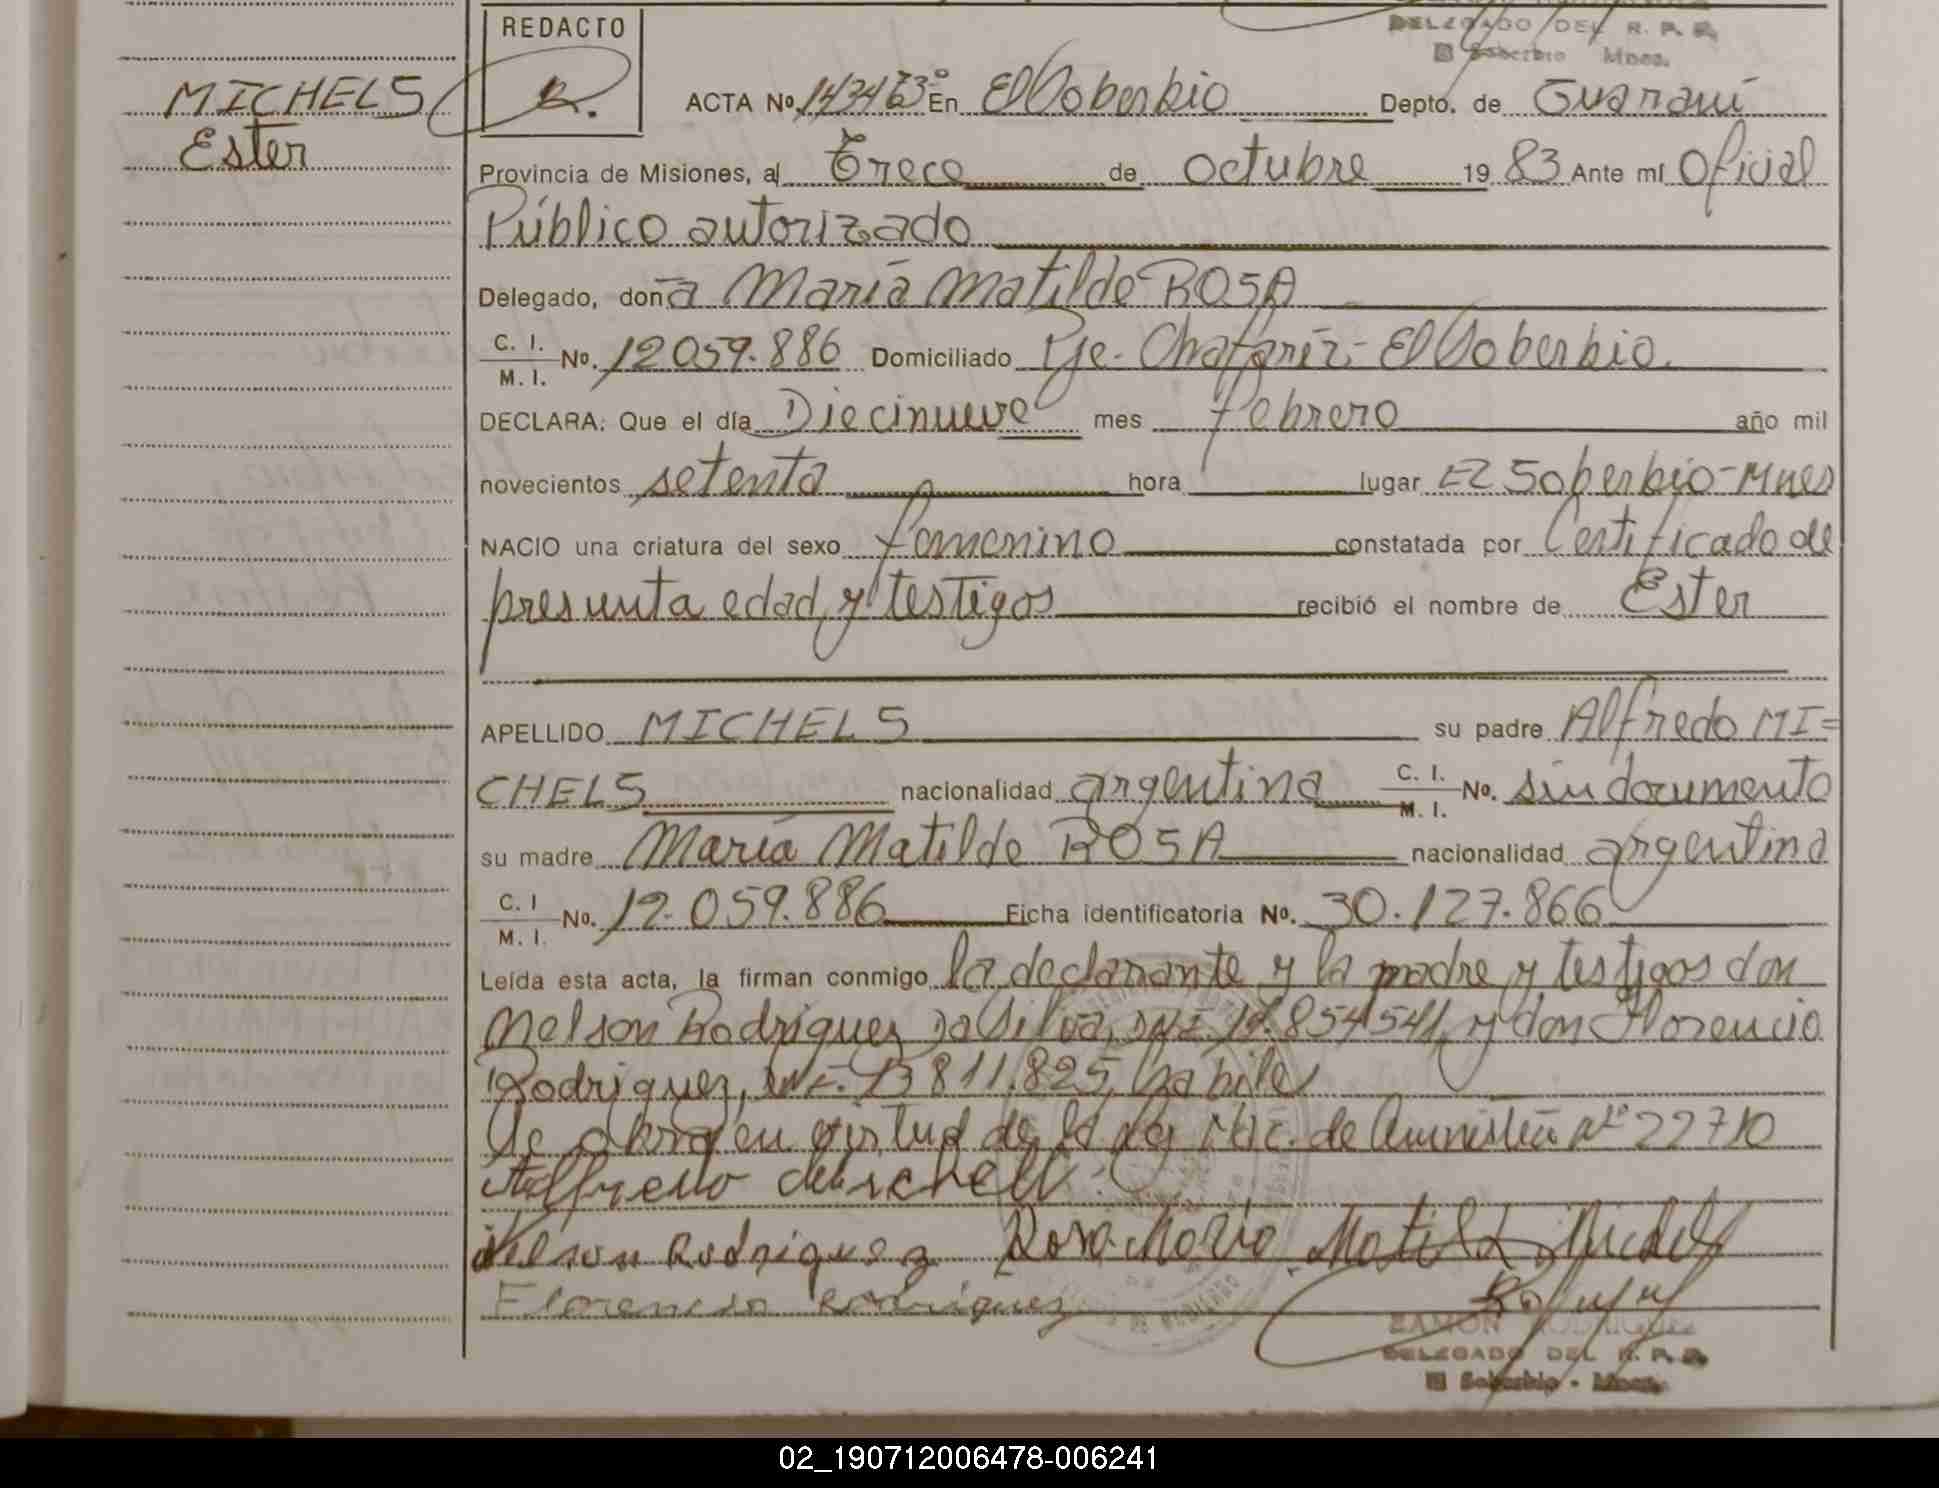 DELEGADO DEL R. P. P.
El Soberbio Mnes.
REDACTO
MICHELS
Ester
ACTA Nº En El Soberbio Depto. de Guaraní
Provincia de Misiones, al Trece de octubre 19 83 Ante mí Oficial
Público autorizado
Delegado, doña María Matilde ROSA
C. I.
M. I. Nº. 12.059.886 Domiciliado Pje. Chafariz - El Soberbio.
DECLARA: Que el día Diecinueve mes febrero año mil
novecientos setenta hora lugar El Soberbio - Mnes
NACIO una criatura del sexo femenino constatada por Certificado de
presunta edad y testigos recibió el nombre de Ester
APELLIDO MICHELS su padre Alfredo MI=
CHELS nacionalidad argentina C. I.
M. I. Nº. sin documento
su madre María Matilde ROSA nacionalidad argentina
C. I
M. I. Nº. 12.059.886 Ficha identificatoria Nº. 30.127.866
Leída esta acta, la firman conmigo la declarante y la madre y testigos don
Nelson Rodriguez Da Silva, 854541, y don Florencio
Rodriguez, 13811.825, habiles
Se obra en virtud de la ley Nac. de Amnistía Nº 22710
Alfredo
Nelson Rodriguez Rosa Maria Matilde Michels
Florencio Rodriguez
RAMON RODRIGUEZ
DELEGADO DEL R. P. P.
El Soberbio - Mnes.
02_190712006478-006241